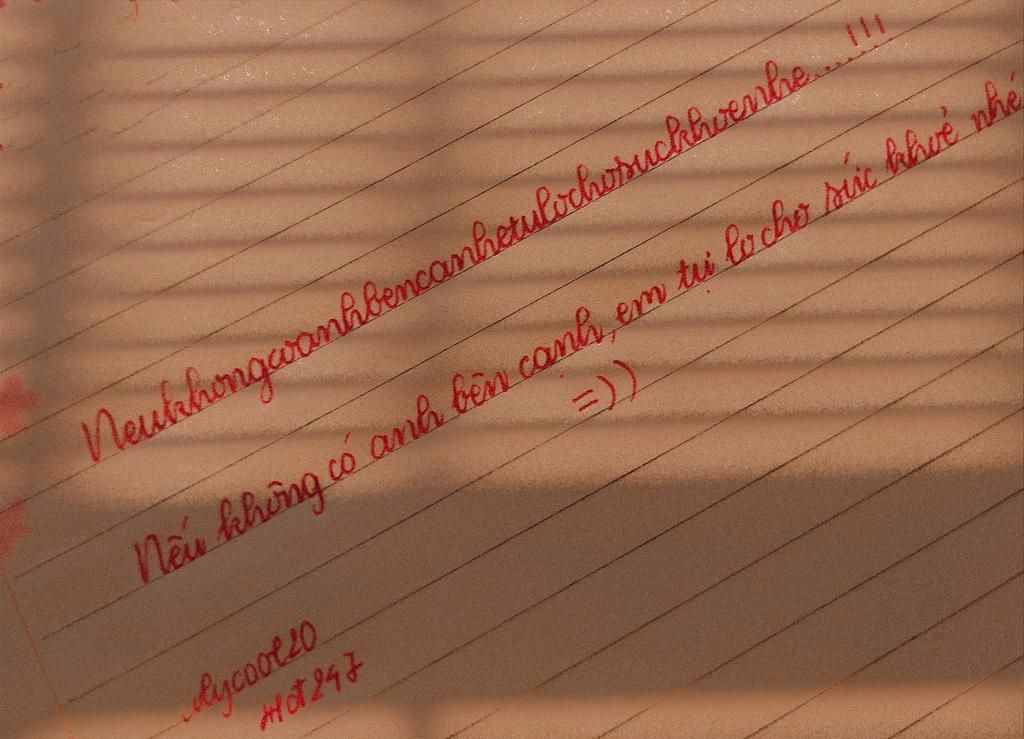 Neukhongcoanhbencanhetulochosuckhoenhe.....!!!
Nếu không có anh bên cạnh, em tự lo cho sức khoẻ nhé
=))
Mycool20
Hot247